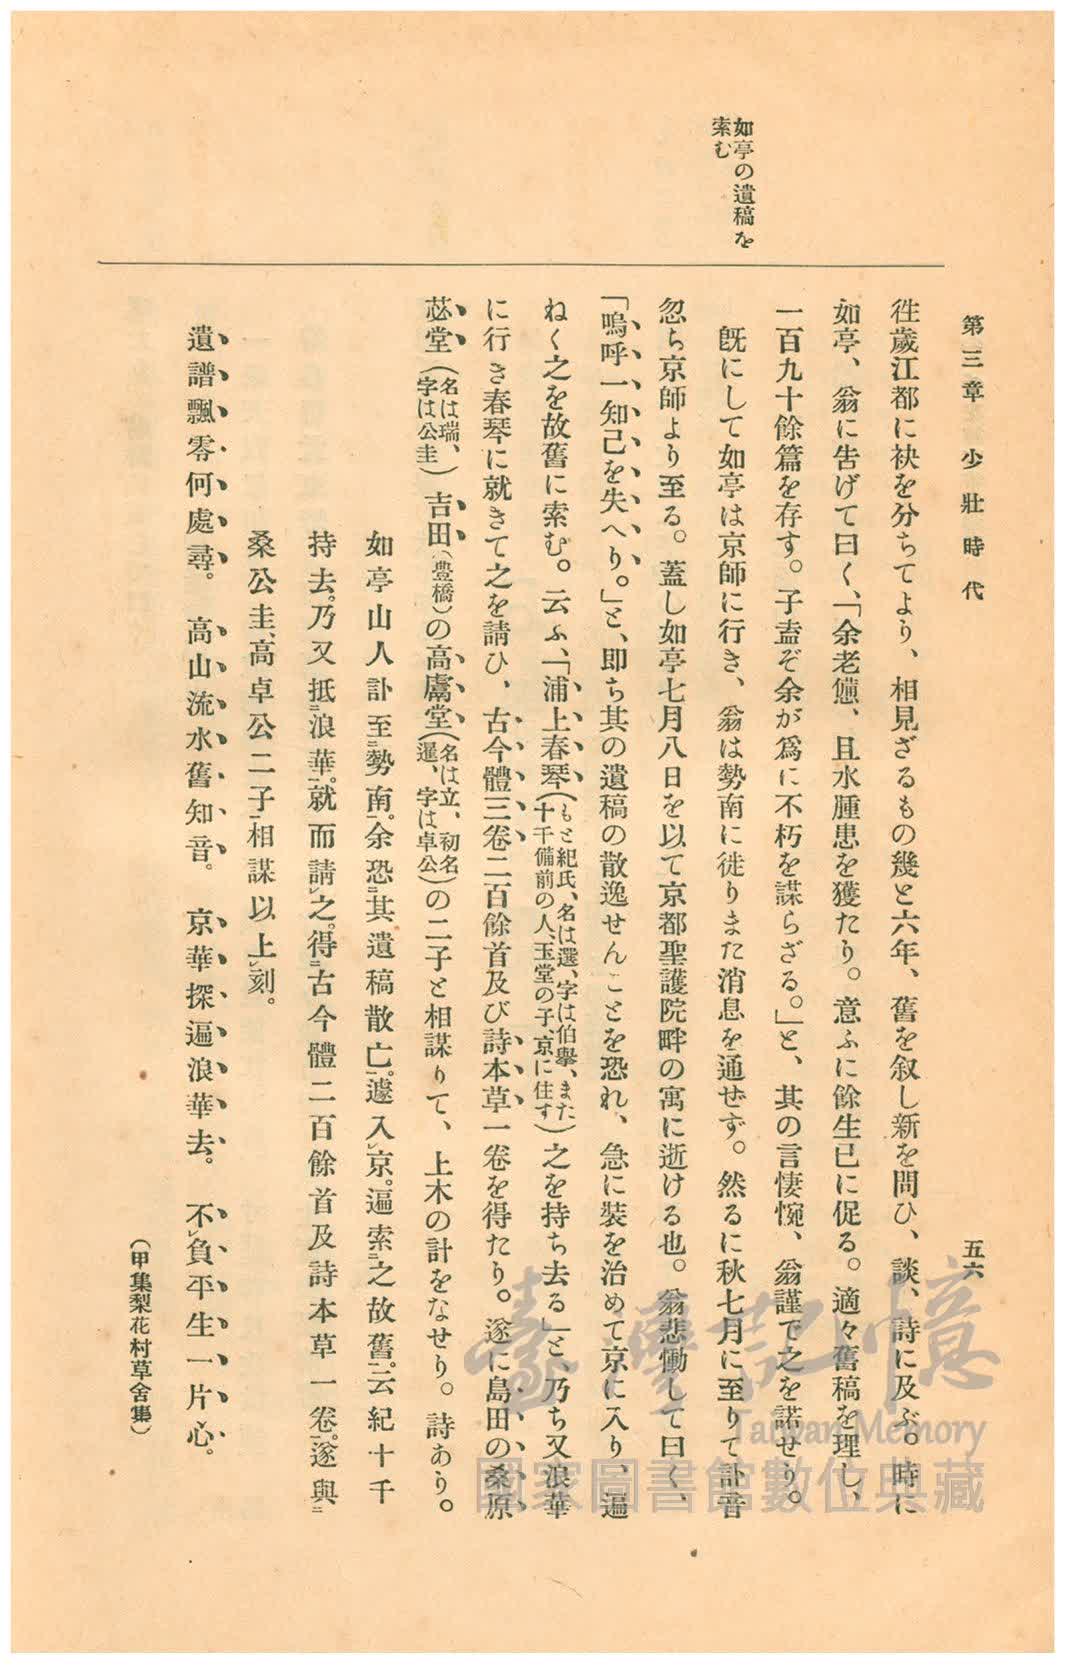 第三章 少壯時代
五六
如亭の遺稿を
索む
徃歲江都に袂を分ちてより、相見ざるもの幾と六年、舊を叙し新を問ひ、談、詩に及ぶ。時に
如亭、翁に吿げて曰く、「余老憊、且水腫患を獲たり。意ふに餘生已に促る。適々舊稿を理し、
一百九十餘篇を存す。子盍ぞ余が爲に不朽を謀らざる。」と、其の言悽惋、翁謹で之を諾せり。
既にして如亭は京師に行き、翁は勢南に徙りまた消息を通ぜず。然るに秋七月に至りて訃音
忽ち京師より至る。蓋し如亭七月八日を以て京都聖護院畔の寓に逝ける也。翁悲慟して曰く、
「嗚呼一知己を失へり。」と、即ち其の遺稿の散逸せんことを恐れ、急に裝を治めて京に入り、遍
ねく之を故舊に索む。云ふ、「浦上春琴(もと紀氏、名は選、字は伯擧、また十千備前の人、玉堂の子、京に住す)之を持ち去る」と、乃ち又浪華
に行き春琴に就きて之を請ひ、古今體三卷二百餘首及び詩本草一卷を得たり。遂に島田の桑原
苾堂(名は瑞、字は公圭)吉田(豊橋)の高鬳堂(名は立、初名暹、字は卓公)の二子と相謀りて、上木の計をなせり。詩あり。
如亭山人訃至勢南。余恐其遺稿散亡。遽入京。遍索之故舊。云紀十千
持去。乃又抵浪華。就而請之。得古今體二百餘首及詩本草一卷。遂與
桑公圭、高卓公二子相謀以上刻。
遺譜飄零何處尋。高山流水舊知音。京華探遍浪華去。不負平生一片心。
(甲集梨花村草舍集)
臺灣記憶
Taiwan Memory
國家圖書館數位典藏